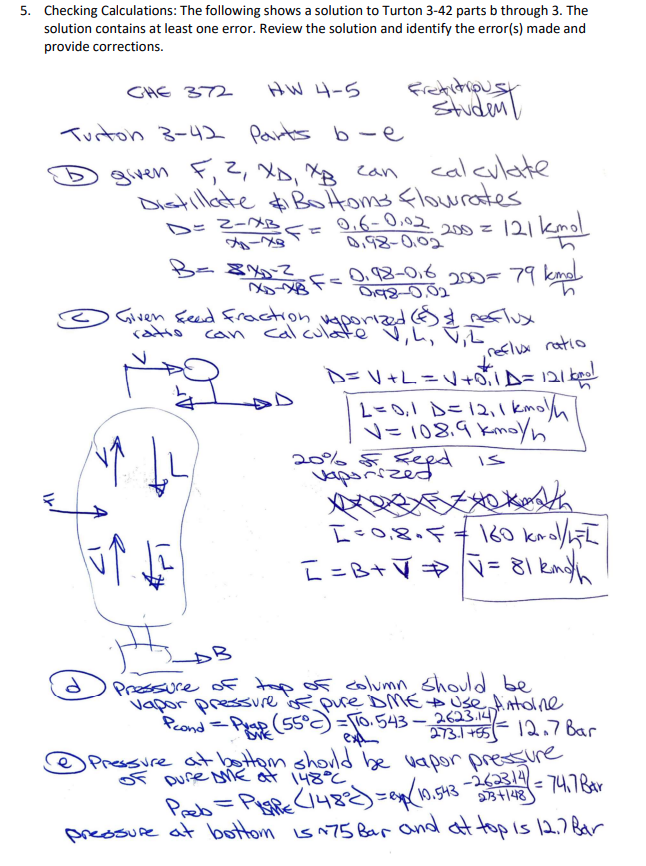 5. Checking Calculations: The following shows a solution to Turton 3-42 parts b through 3. The
solution contains at least one error. Review the solution and identify the error(s) made and
provide corrections.
CHE 372 HW 4-5 Fictitious
Student
Turton 3-42 Parts b - e
(b) given F, Z, XD, XB can calculate
Distillate & Bottoms flowrates
D = Z-XB/XD-XB F = 0.6-0.02/0.98-0.02 200 = 121 kmol/h
B = XD-Z/XD-XB F = 0.98-0.6/0.98-0.02 200 = 79 kmol/h
(c) Given feed fraction vaporized (f) & reflux
ratio can calculate V, L, V̄, L̄
reflux ratio
V
L
D
D = V + L = V + 0.1 D = 121 kmol/h
L = 0.1 D = 12.1 kmol/h
V = 108.9 kmol/h
V↑ ↓L
20% of feed is
vaporized
F
L̄ = 0.8 • F = 160 kmol/h = L̄
V̄↑ ↓L̄
L̄ = B + V̄ ⇒ V̄ = 81 kmol/h
B
(d) Pressure of top of column should be
vapor pressure of pure DME → Use Antoine
Pcond = Pvap DME (55°C) = exp[10.543 - 2623.14/273.1+55] = 12.7 Bar
(e) Pressure at bottom should be vapor pressure
of pure DME at 148°C
Preb = PvapDME (148°C) = exp(10.543 - 2623.14/273+148) = 74.7 Bar
pressure at bottom is ~75 Bar and at top is 12.7 Bar